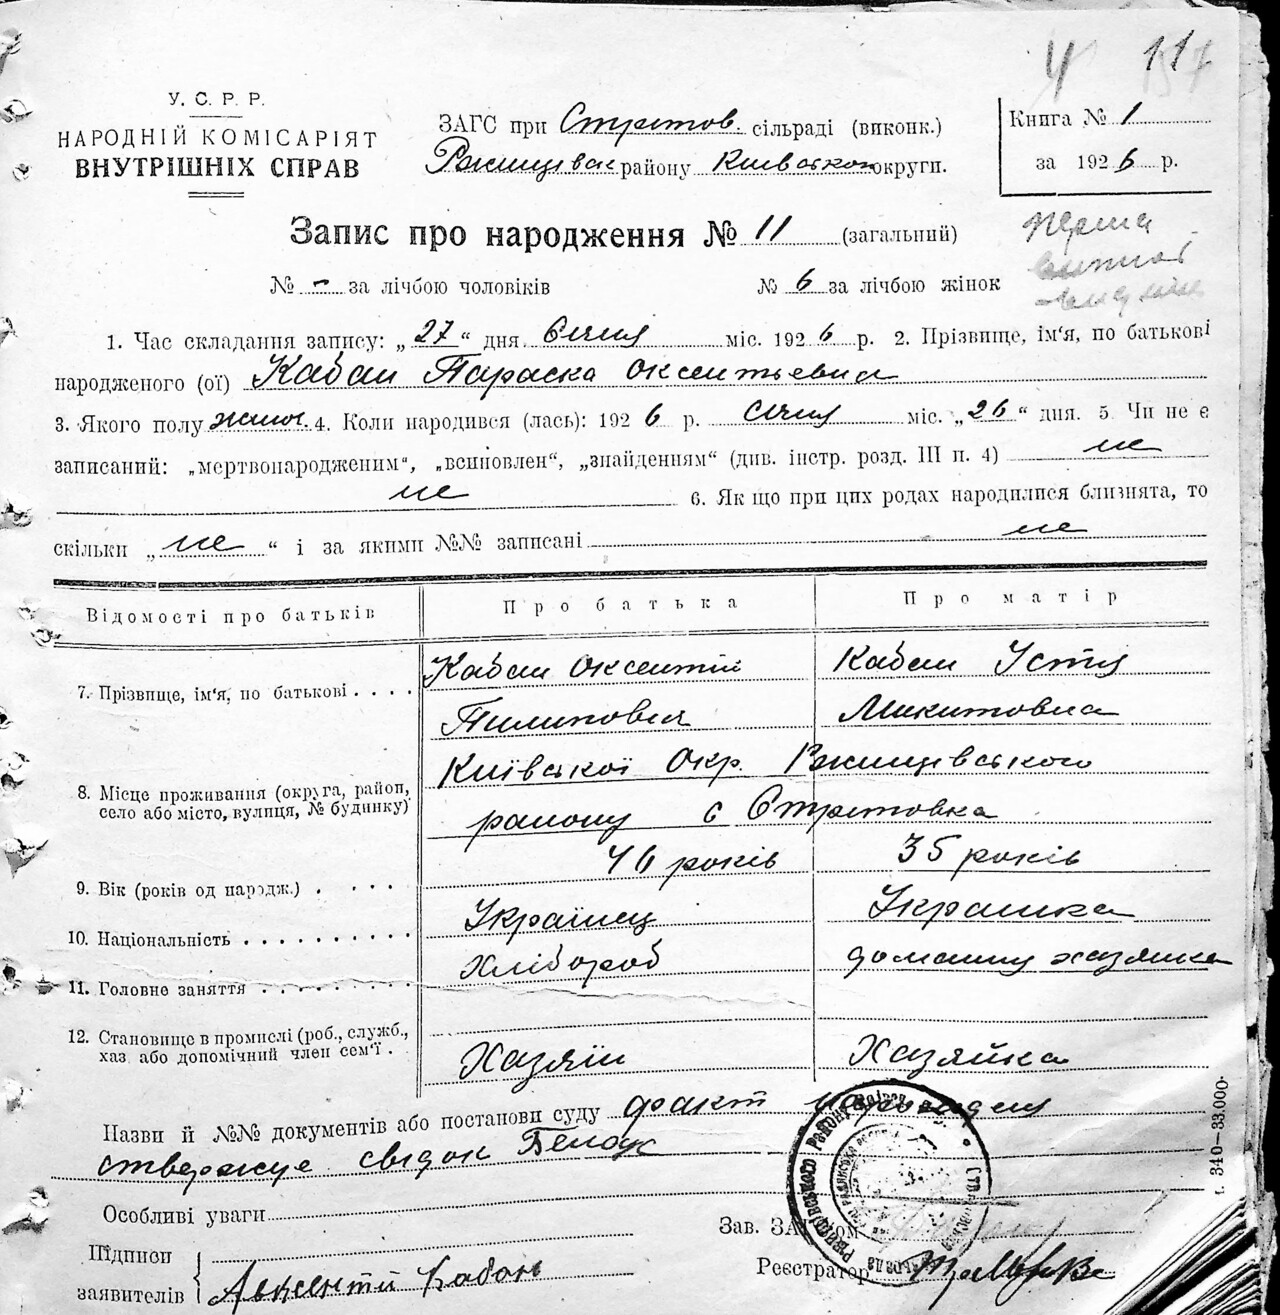 11
У. С. Р. Р.
НАРОДНІЙ КОМІСАРІЯТ
ВНУТРІШНІХ СПРАВ
ЗАГС при Стритов. сільраді (виконк.)
Ржищівськ району Київської округи.
Книга № 1
за 1926 р.
Запис про народження № 11 (загальний)
№ - за лічбою чоловіків № 6 за лічбою жінок
1. Час складання запису: „27“ дня Січня міс. 1926 р. 2. Прізвище, ім'я, по батькові
народженого (ої) Кабан Параска Оксентьевна
3. Якого полу жіноч. 4. Коли народився (лась): 1926 р. січня міс. „26“ дня. 5. Чи не є
записаний: „мертвонародженим“, „всиновлен“, „знайденням“ (див. інстр. розд. III п. 4) не
не 6. Як що при цих родах народилися близнята, то
скільки „не“ і за якими №№ записані не
Відомості про батьків Про батька Про матір
7. Прізвище, ім'я, по батькові . . . . Кабан Оксентій Кабан Устя
Пилипович Микитовна
8. Місце проживання (округа, район, село або місто, вулиця, № будинку) Київської Окр. Ржищівського
району с Стритовка
9. Вік (років од народж.) . . . . 46 років 35 років
10. Національність . . . . . . . . . . Українец Украинка
11. Головне заняття . . . . . . . . . Хлібороб домашну хазяйка
12. Становище в промислі (роб., служб.,
хаз або допомічний член сем'ї . Хазяїн Хазяйка
Назви й №№ документів або постанови суду факт народження
ствержує свідок Белоус
Особливі уваги
Зав. ЗАГСом
Підписи
заявителів Авксентій Кабан
Реєстратор
340—33.000.